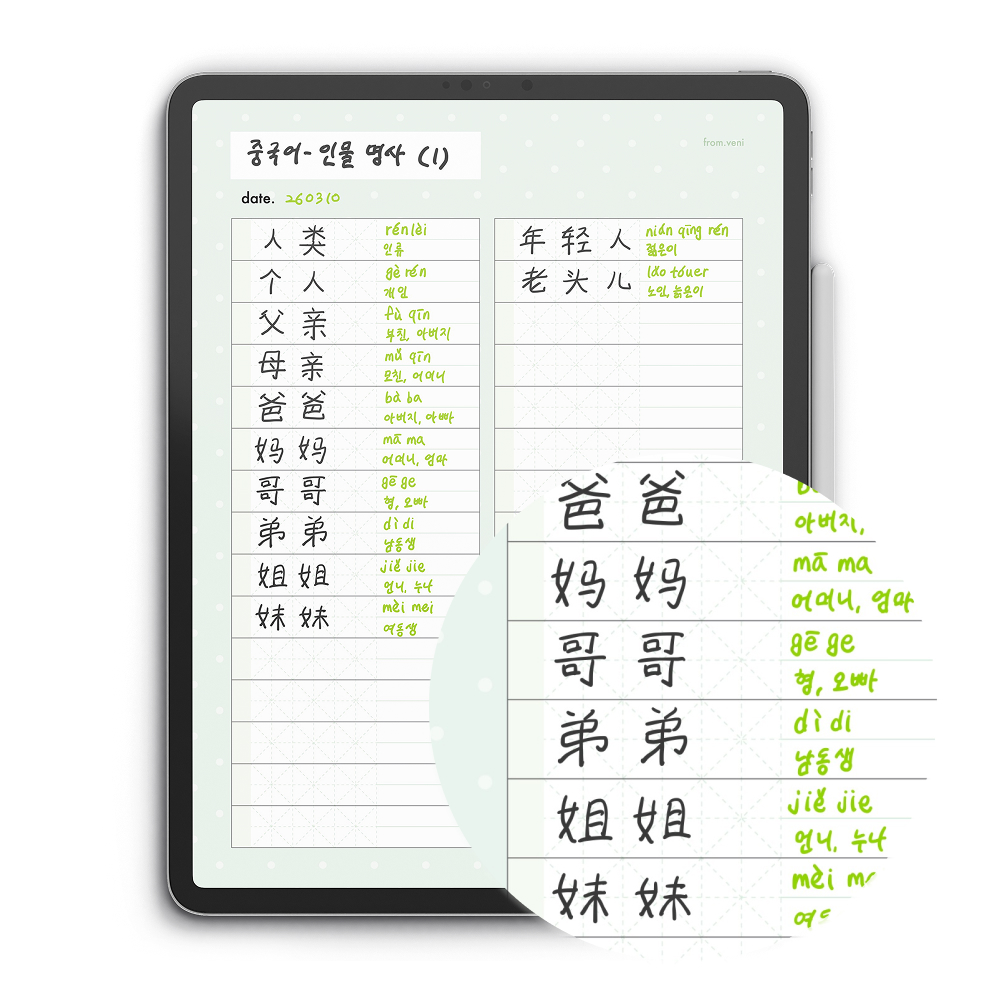 중국어- 인물 명사 (1)
from.veni
date. 260310
人类 rén lèi
인류
个人 gè rén
개인
父亲 fù qīn
부친, 아버지
母亲 mǔ qīn
모친, 어머니
爸爸 bà ba
아버지, 아빠
妈妈 mā ma
어머니, 엄마
哥哥 gē ge
형, 오빠
弟弟 dì di
남동생
姐姐 jiě jie
언니, 누나
妹妹 mèi mei
여동생
年轻人 nián qīng rén
젊은이
老头儿 lǎo tóuer
노인, 늙은이
爸爸
아버지,
妈妈 mā ma
어머니, 엄마
哥哥 gē ge
형, 오빠
弟弟 dì di
남동생
姐姐 jiě jie
언니, 누나
妹妹 mèi